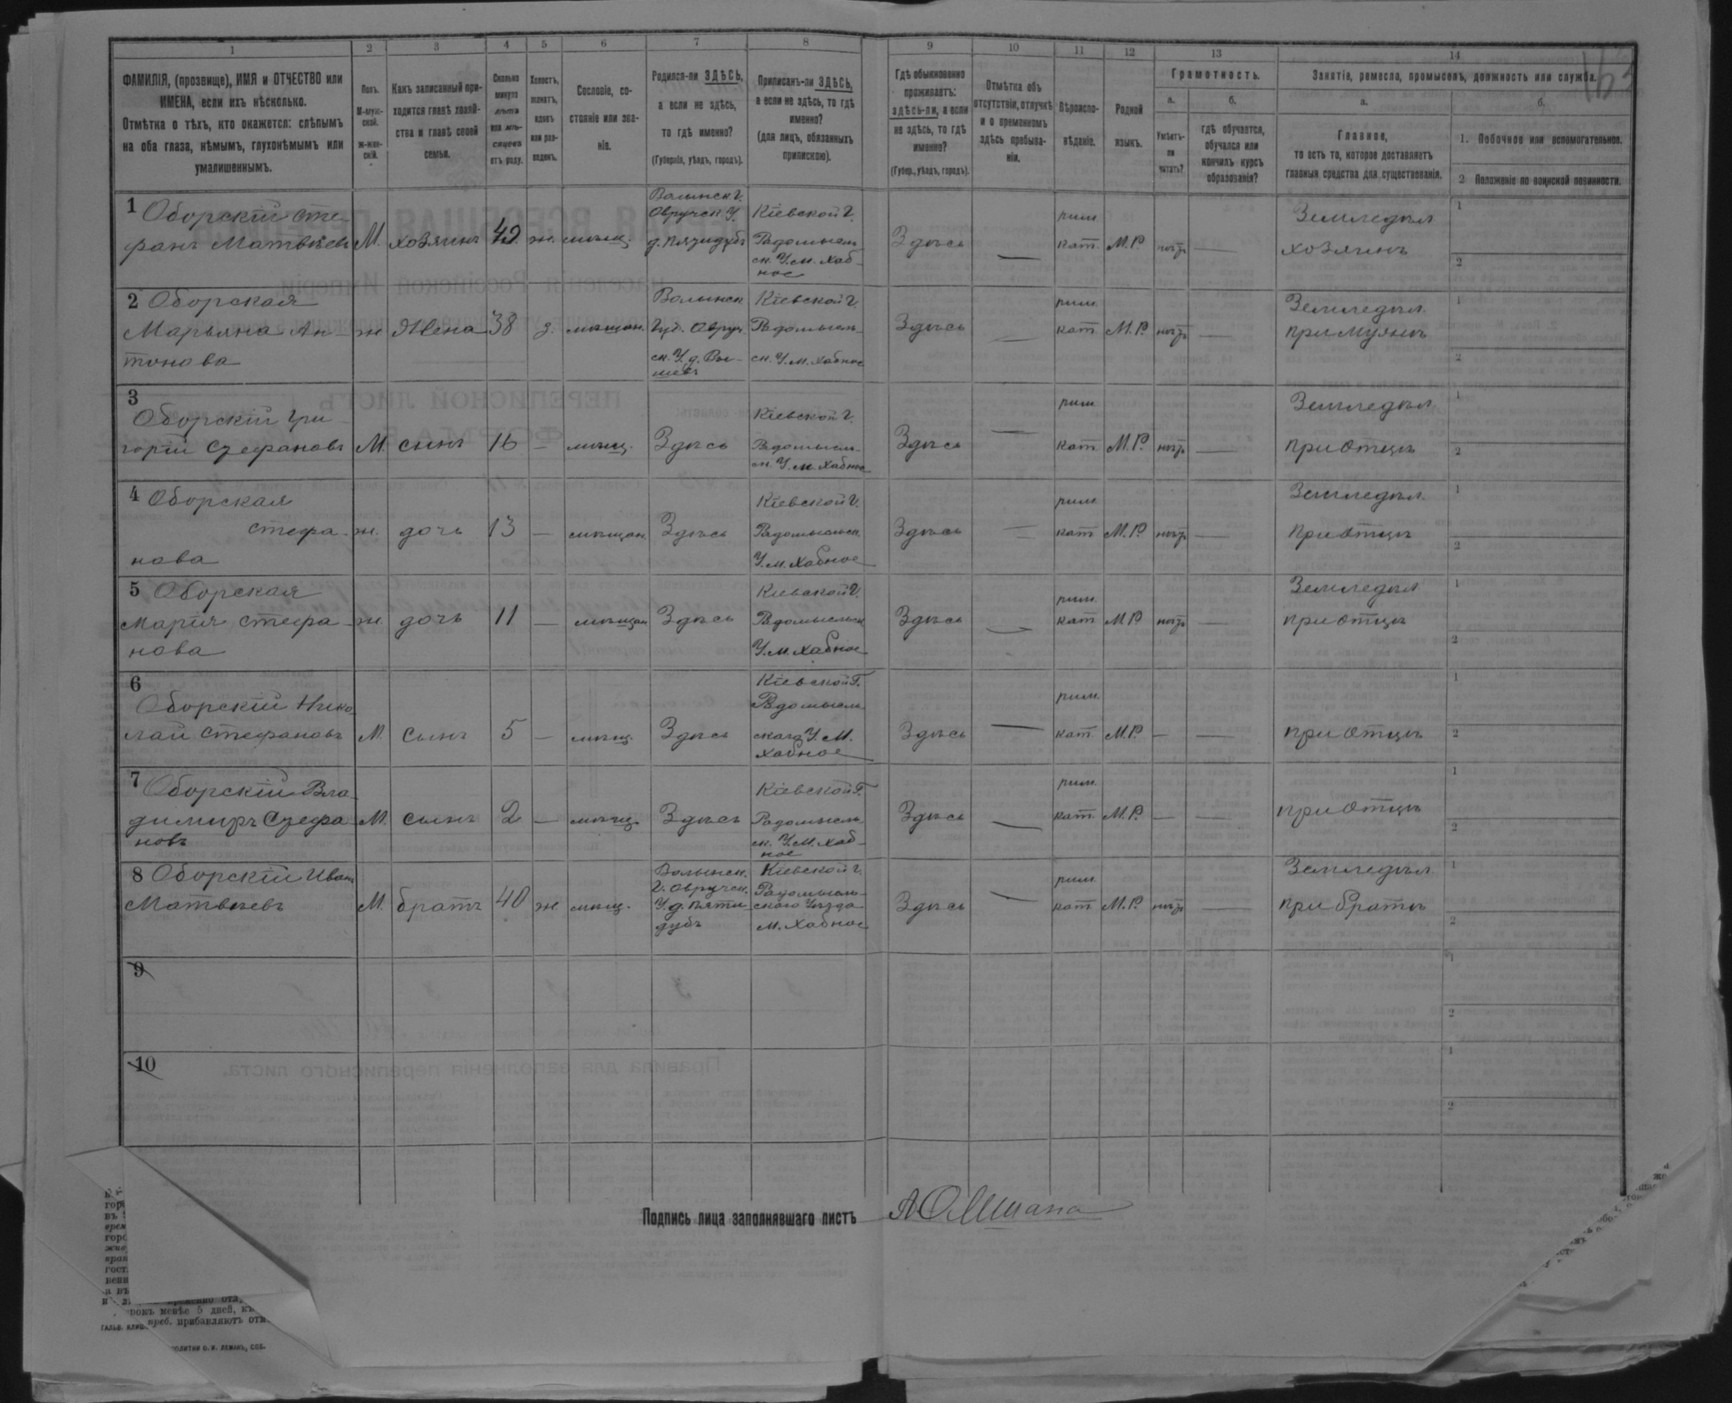 1 2 3 4 5 6 7 8 9 10 11 12 13 14
163
ФАМИЛІЯ, (прозвище), ИМЯ и ОТЧЕСТВО или
ИМЕНА, если ихъ нѣсколько.
Отмѣтка о тѣхъ, кто окажется: слѣпымъ
на оба глаза, нѣмымъ, глухонѣмымъ или
умалишеннымъ.
Полъ.
М-муж-
ской.
Ж-жен-
скій.
Какъ записанный при-
ходится главѣ хозяй-
ства и главѣ своей
семьи.
Сколько
минуло
лѣтъ
или мѣ-
сяцевъ
отъ роду.
Холостъ,
женатъ,
вдовъ
или раз-
веденъ.
Сословіе, со-
стояніе или зва-
ніе.
Родился-ли ЗДѢСЬ,
а если не здѣсь,
то гдѣ именно?
(Губернія, уѣздъ, городъ).
Приписанъ-ли ЗДѢСЬ,
а если не здѣсь, то гдѣ
именно?
(для лицъ, обязанныхъ
припискою).
Гдѣ обыкновенно
проживаетъ:
здѣсь-ли, а если
не здѣсь, то гдѣ
именно?
(Губер., уѣздъ, городъ).
Отмѣтка объ
отсутствіи, отлучкѣ
и о временномъ
здѣсь пребыва-
ніи.
Вѣроиспо-
вѣданіе.
Родной
языкъ.
Грамотность.
а.
Умѣетъ-
ли
читать?
б.
гдѣ обучается,
обучался или
кончилъ курсъ
образованія?
Занятія, ремесло, промыселъ, должность или служба.
а.
Главное,
то есть то, которое доставляетъ
главныя средства для существованія.
б.
1. Побочное или вспомогательное.
2 Положеніе по воинской повинности.
1 Оборскій Сте-
фанъ Матвѣевъ
М. хозяинъ 42 ж. мѣщ.
Волынск Г.
Овручск У.
д. Пятидубъ
Кіевской Г.
Радомысль-
ск. У. м. Хаб-
ное
Здѣсь —
рим.
кат. М.Р. негр —
Земледѣл
хозяинъ
1
2
2 Оборская
Марьяна Ан-
тонова
ж Жена 38 з. мѣщан.
Волынск
Губ. Овруч
ск. У. д.
Кіевской Г.
Радомысл-
ск. У. м. Хабное
Здѣсь —
рим.
кат М.Р. негр —
Земледѣл.
при мужѣ
1
2
3
Оборскій Гри-
горій Стефановъ
М. сынъ 16 — мѣщ. Здѣсь
Кіевской Г.
Радомысл-
ск. У. м. Хабное
Здѣсь —
рим.
кат М.Р. негр —
Земледѣл.
при отцѣ
1
2
4 Оборская
Стефа-
нова
ж. дочь 13 — мѣщан. Здѣсь
Кіевской Г.
Радомысльск.
У. м. Хабное
Здѣсь —
рим.
кат М.Р. негр —
Земледѣл.
при отцѣ
1
2
5 Оборская
Марія Стефа-
нова
ж. дочь 11 — мѣщан Здѣсь
Кіевской Г.
Радомысльск
У. м. Хабное
Здѣсь —
рим.
кат М.Р негр —
Земледѣл
при отцѣ
1
2
6
Оборскій Нико
лай Стефановъ
М. сынъ 5 — мѣщ. Здѣсь
Кіевской Г.
Радомысл
скаго У. М.
Хабное
Здѣсь —
рим.
кат М.Р. — —
при отцѣ
1
2
7
Оборскій Вла-
димиръ Стефа
новъ
М. сынъ 2 — мѣщ. Здѣсь
Кіевской Г.
Радомысль
ск. У. М. Хаб-
ное
Здѣсь —
рим.
кат. М.Р. — —
при отцѣ
1
2
8 Оборскій Иванъ
Матвѣевъ
М. братъ 40 ж мѣщ.
Волынск.
Г. Овручск.
У. д. Пяти
дубъ
Кіевской Г.
Радомысль-
скаго Уѣзда
м. Хабное
Здѣсь —
рим.
кат. М.Р. негр —
Земледѣл
при братѣ
1
2
9
1
2
10
1
2
Подпись лица заполнявшаго листъ
рокъ менѣе 5 дней,
треб. прибавляютъ